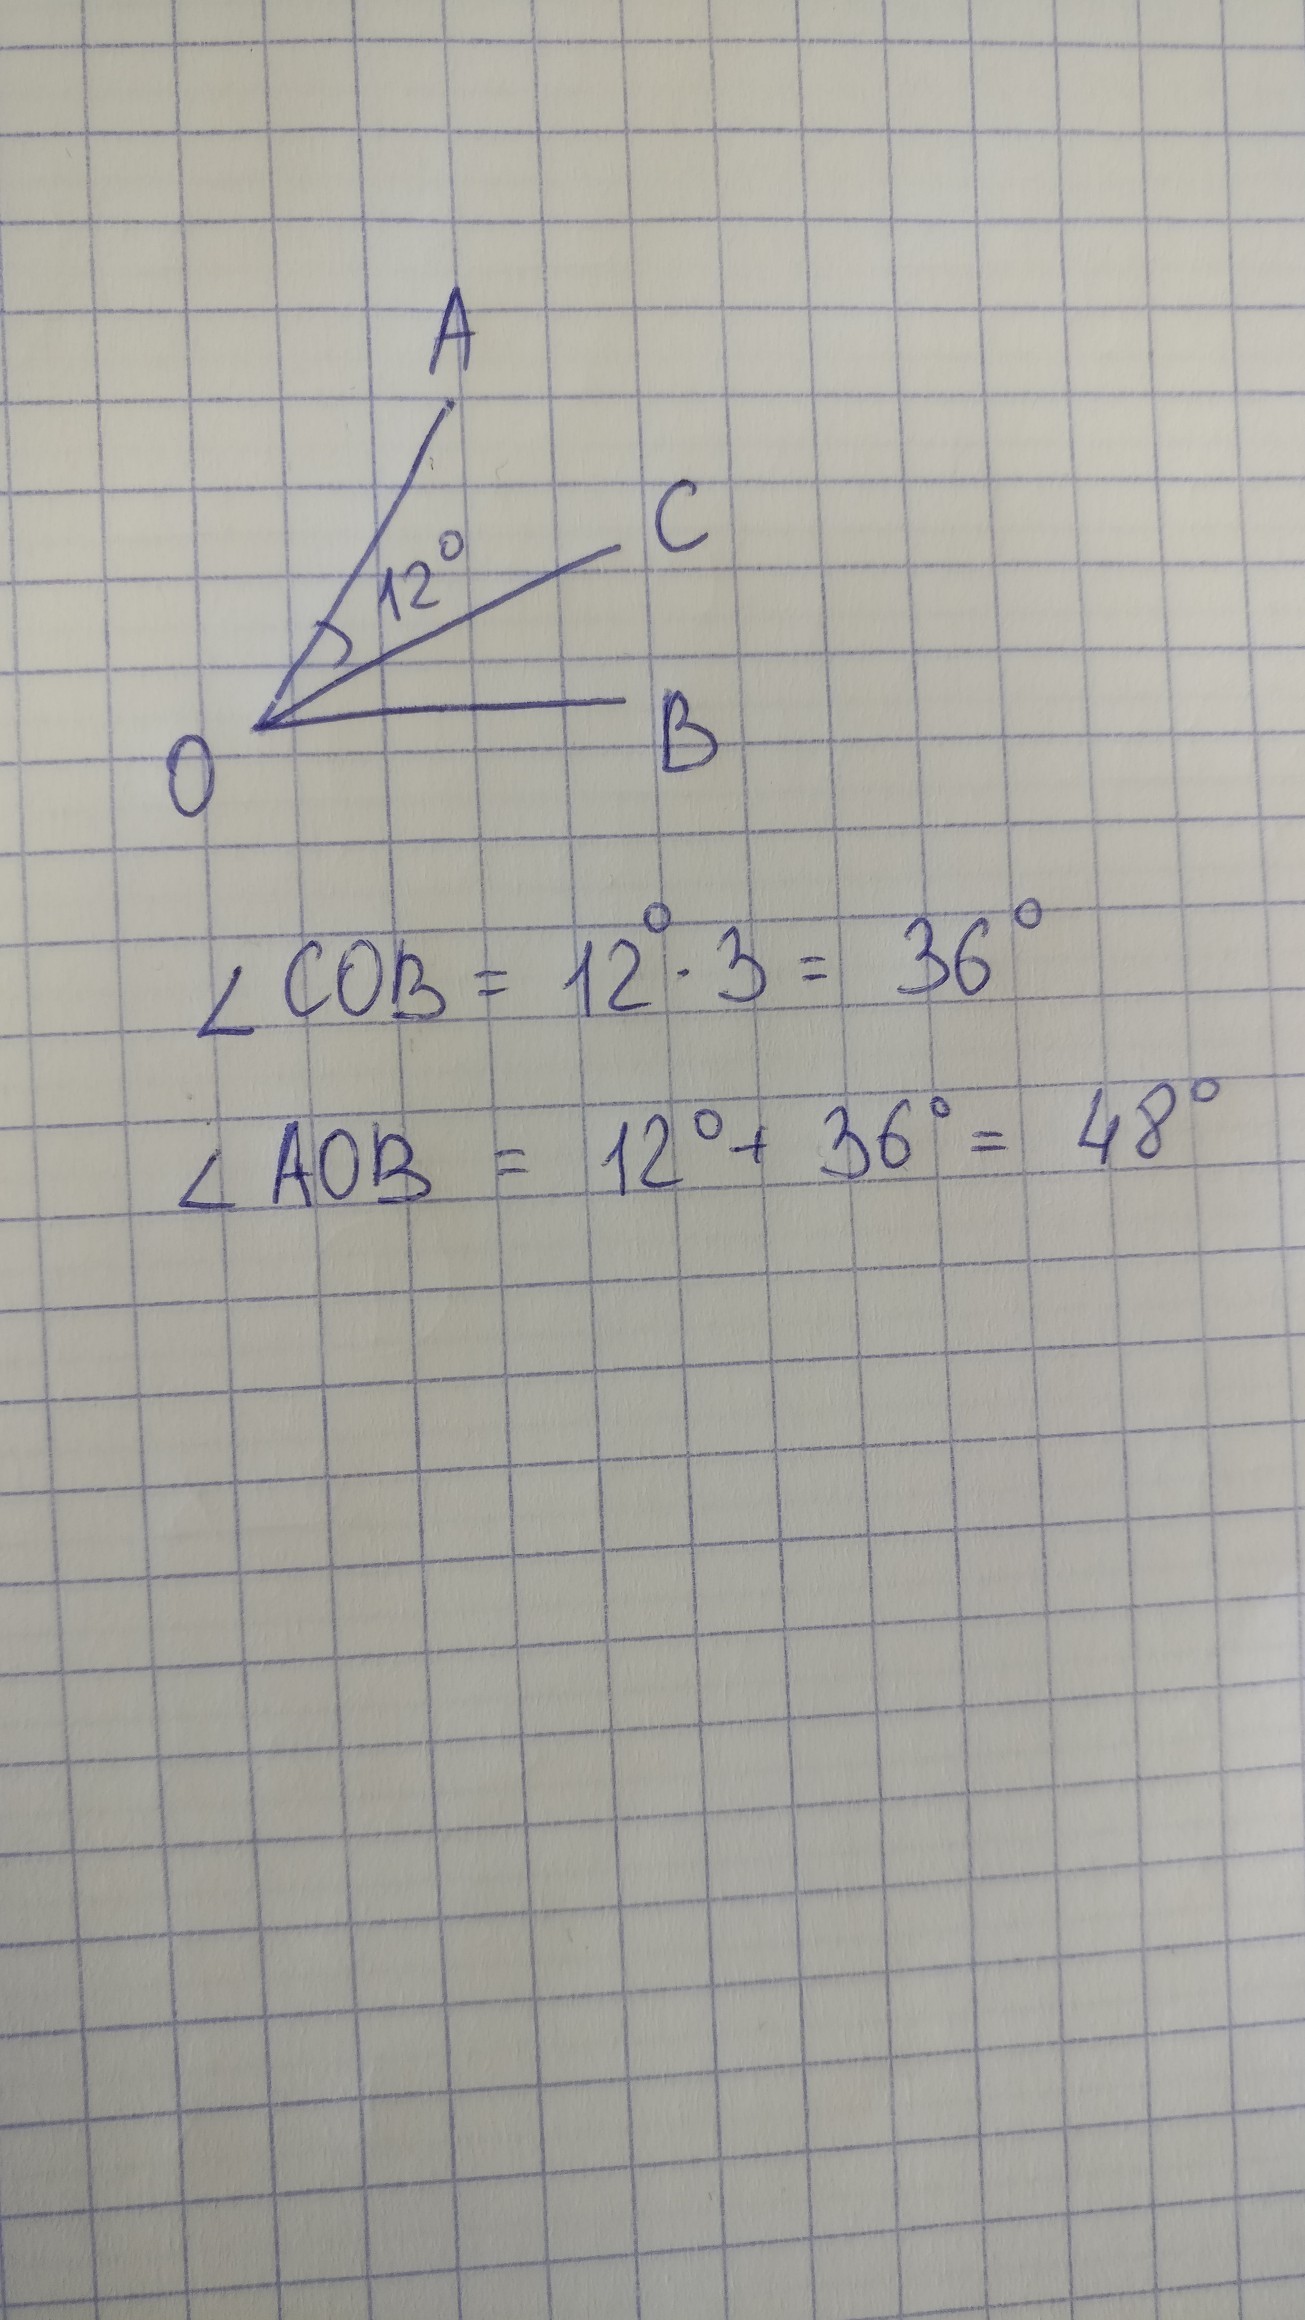 A
12°
C
O
B
∠COB = 12° · 3 = 36°
∠AOB = 12° + 36° = 48°